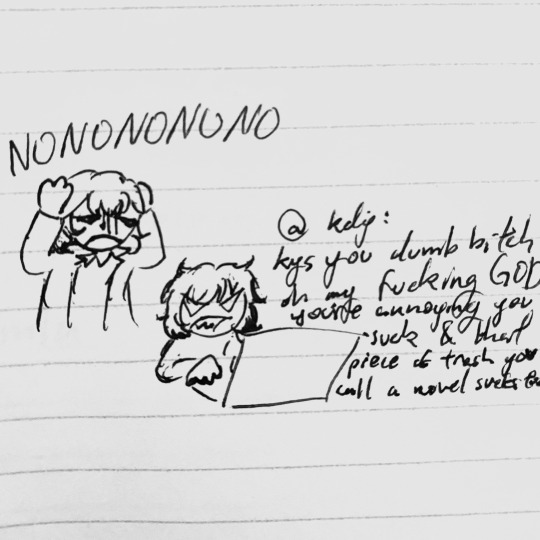 NONONONONO
@ kdj:
kys you dumb bitch
oh my fucking GOD
you're annoying you
suck & that
piece of trash you
call a novel sucks too